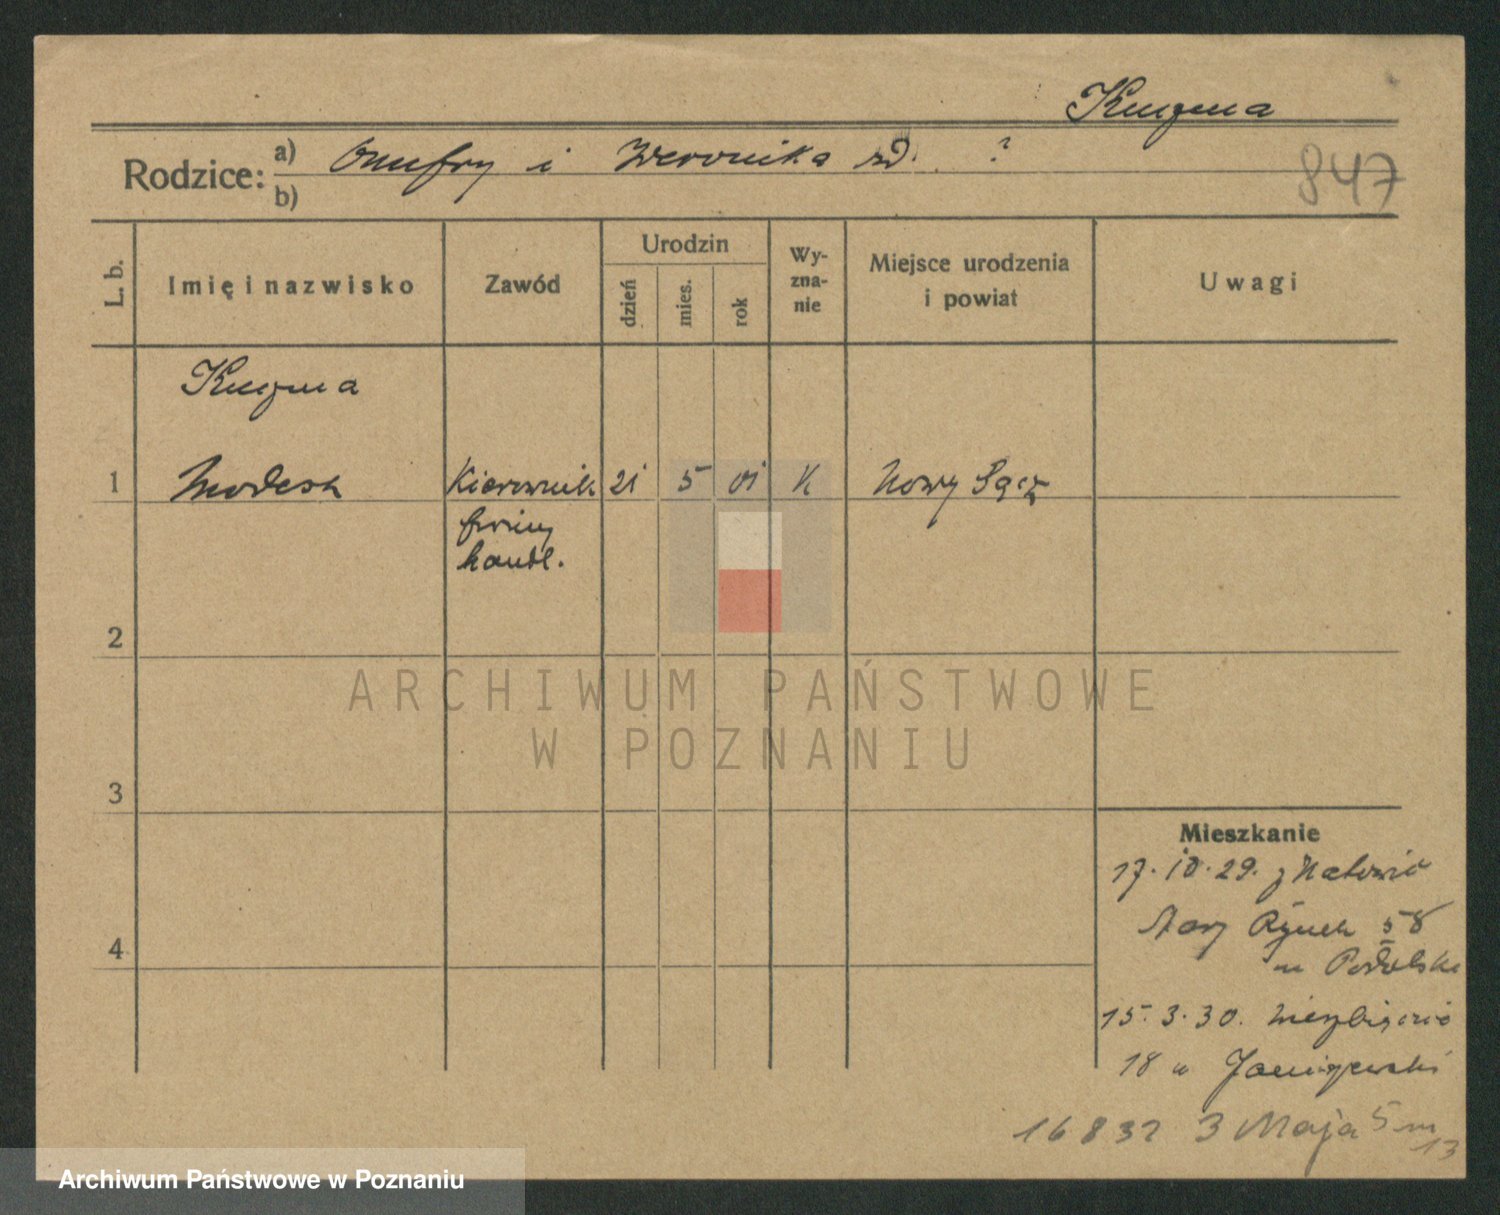 Kuźma
Rodzice: a) Onufry i Weronika zd. ?
b)
847
L. b.
Imię i nazwisko
Zawód
Urodzin
dzień
mies.
rok
Wy-
zna-
nie
Miejsce urodzenia
i powiat
Uwagi
Kuźma
1 Modest Kierownik 21 5 01 K Nowy Sącz
firmy
handl.
2
ARCHIWUM PAŃSTWOWE
W POZNANIU
3
Mieszkanie
17.10.29. z Katowic
Stary Rynek 58
u Podolski
4
15.3.30.
18 u Janiszewski
16832 3 Maja 5 m
13
Archiwum Państwowe w Poznaniu